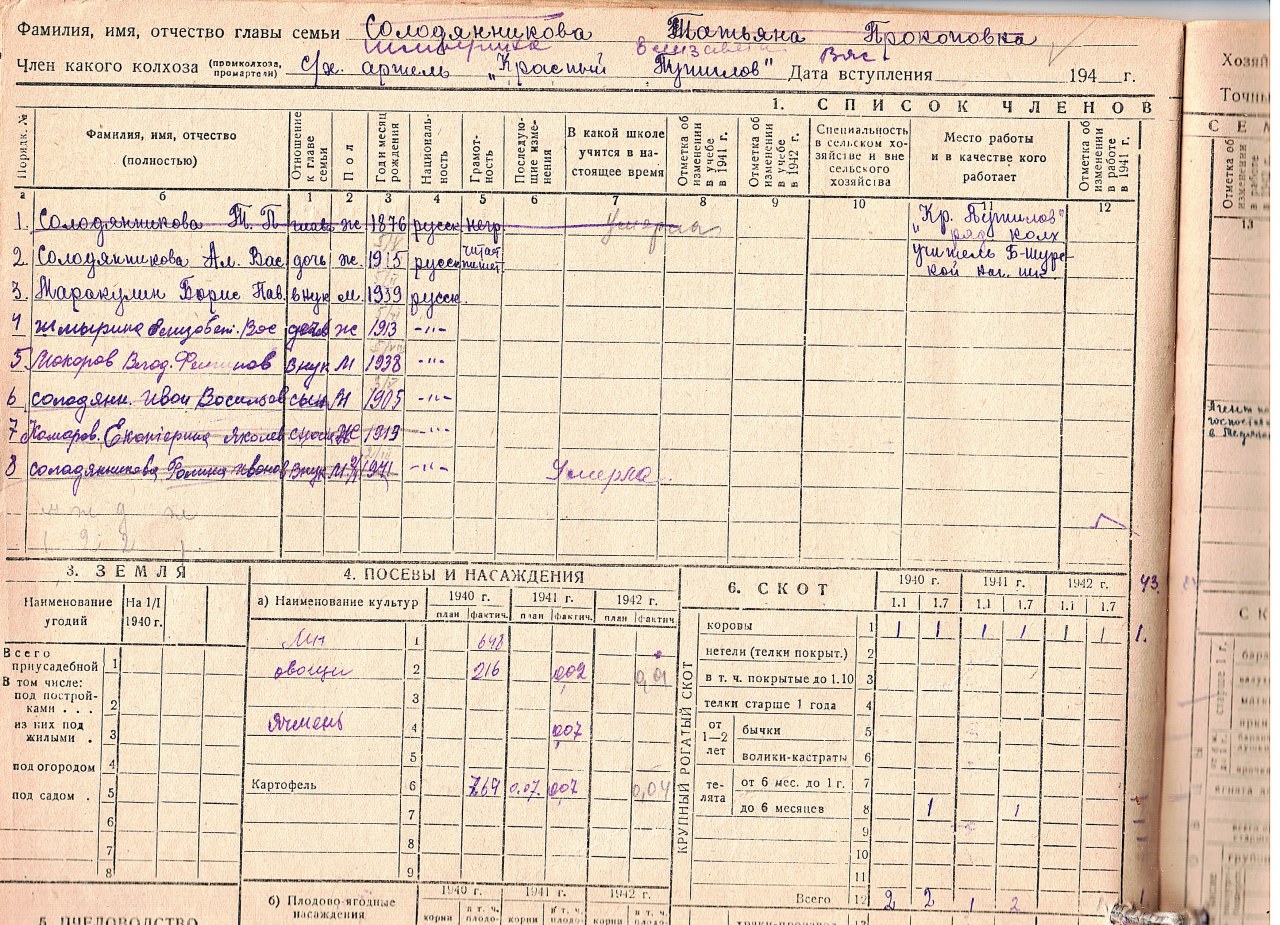 Фамилия, имя, отчество главы семьи Солодянникова Татьяна Прокоповна
Елизавета Вяс.
Член какого колхоза (промколхоза, промартели) с/х. артель „Красный Путилов" Дата вступления 194 г.
1. СПИСОК ЧЛЕНОВ
Порядк. № Фамилия, имя, отчество (полностью) Отношение к главе семьи Пол Год и месяц рождения Националь-ность Грамот-ность Последую-щие изме-нения В какой школе учится в на-стоящее время Отметка об изменении в учебе в 1941 г. Отметка об изменении в учебе в 1942 г. Специальность в сельском хо-зяйстве и вне сельского хозяйства Место работы и в качестве кого работает Отметка об изменении в работе в 1941 г.
а б 1 2 3 4 5 6 7 8 9 10 11 12 13
1. Солодянникова Т. П глава ж 1876 русск негр. Умерла Кр. Путилов" ряд. колх
2. Солодянникова Ал. Вас дочь ж. 1915 русск читает пишет учитель Б-шурской нач. шк.
3. Маракулин Борис Пав. внук м. 1939 русск.
4 Жмырина Елизовет. Вас дочь ж 1913 -"-
5 Макаров Влад. внук М 1938 -"-
6 солодянн. Иван Восильев сын М 1905 -"-
7 Комаров. Екатерина Яковлев сноха Ж 1919 -"-
8 соладянникова Галина Иванов внук М 1941 -"- Умерла.
3. ЗЕМЛЯ
Наименование угодий На 1/I 1940 г.
Всего приусадебной 1
В том числе:
под построй-ками . . . 2
из них под жилыми . 3
под огородом 4
под садом . 5
6
7
8
5. ПЧЕЛОВОДСТВО
4. ПОСЕВЫ И НАСАЖДЕНИЯ
а) Наименование культур 1940 г. 1941 г. 1942 г.
план фактич. план фактич. план фактич.
1 648
овощи 2 216 002 0,01
3
Ячмень 4 007
5
Картофель 6 769 0,07. 007 0,04
7
8
9
б) Плодово-ягодные насаждения 1940 г. 1941 г. 1942 г.
корни в т. ч. плодо- корни в т. ч. плодо- корни в т. ч. плодо-
6. СКОТ 1940 г. 1941 г. 1942 г. 43.
1.1 1.7 1.1 1.7 1.1 1.7
КРУПНЫЙ РОГАТЫЙ СКОТ
коровы 1 1 1 1 1 1 1 1.
нетели (телки покрыт.) 2
в т. ч. покрытые до 1.10 3
телки старше 1 года 4
от 1—2 лет бычки 5
волики-кастраты 6
те-лята от 6 мес. до 1 г. 7
до 6 месяцев 8 1 1
9
10
11
Всего 12 2 2 1 2
Хозяй
Точны
СЕМ
Отметка об изменении в работе